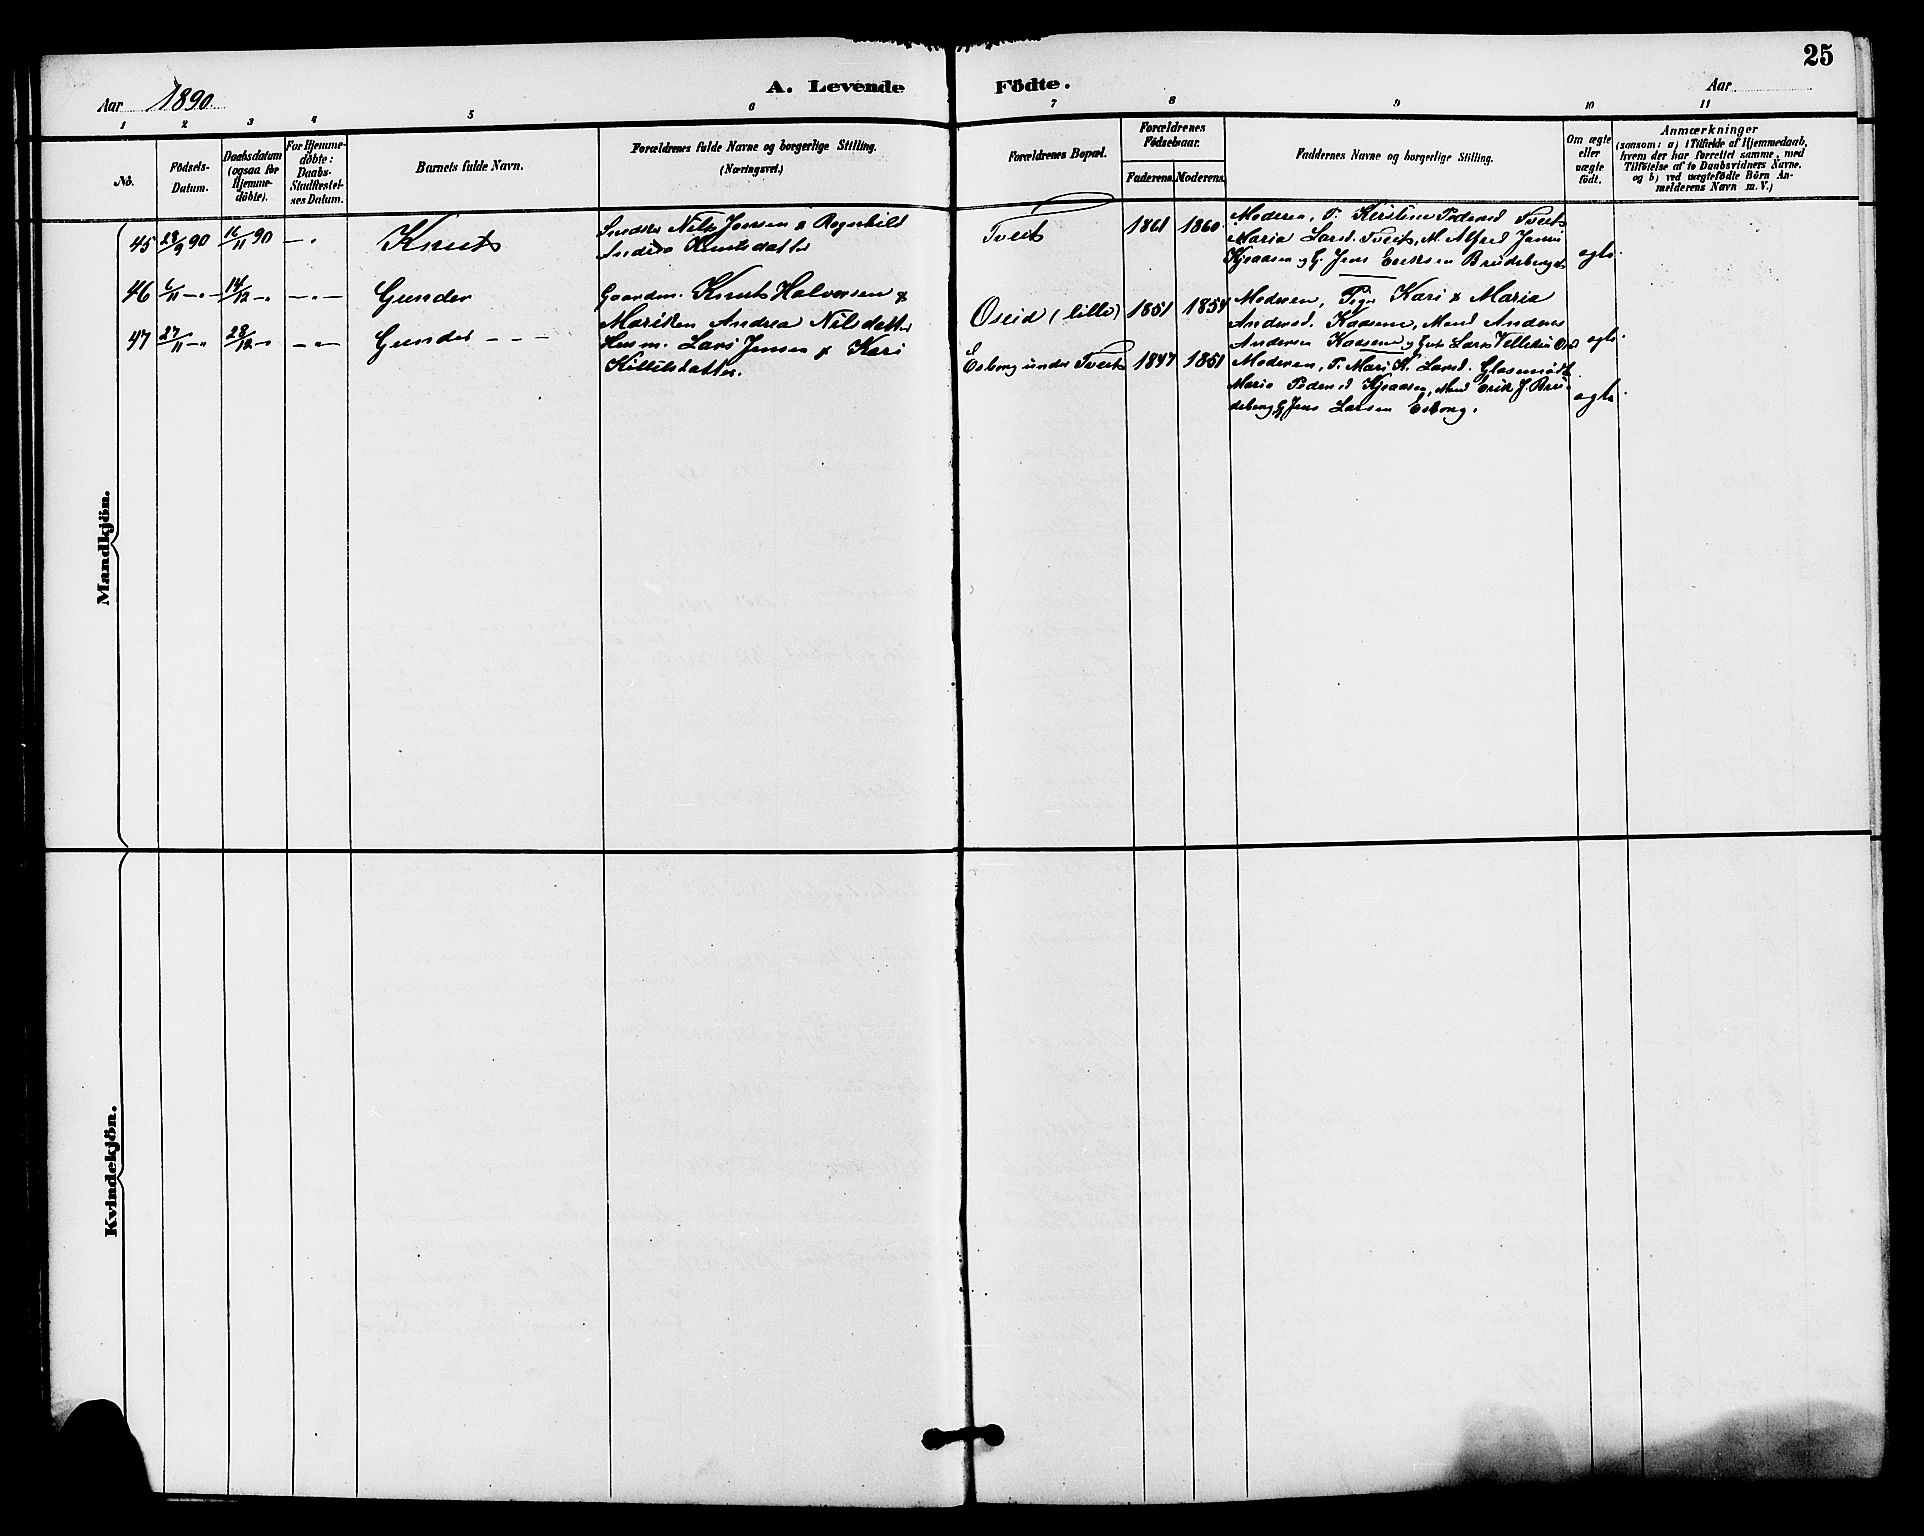 25
Aar 1890.
A. Levende Födte.
Aar
1 2 3 4 5 6 7 8 9 10 11
No.
Födsels-Datum.
Daabsdatum (ogsaa for Hjemme-döbte).
For Hjemme-döbte: Daabs-Stadfæstel-ses Datum.
Barnets fulde Navn.
Forældrenes fulde Navne og borgerlige Stilling. (Næringsvei.)
Forældrenes Bopæl.
Forældrenes Födselsaar.
Faderens. Moderens.
Faddernes Navne og borgerlige Stilling.
Om ægte eller uægte födt.
Anmærkninger
(saasom: a) i Tilfælde af Hjemmedaab,
hvem der har forrettet samme, med
Tilföielse af to Daabsvidners Navne.
og b) ved uægtefödte Börn An-
melderens Navn m. V.)
Mandkjön.
45 28/9 90 16/11 90 — „ Knut
Smeder Nils Jensen & Ragnhild
Andrea Knutsdatter
Tveit 1861 1860.
Moderen, P. Kirstine Pedersd Tveit
Maria Larsd. Tveit, M. Alfred Jensen
Kjeaasen og G. Jens Eriksen Brödeberget
ægte.
46 6/11 — „ 14/12 — „ — „ — Gunder
Gaardm. Knut Halvorsen &
Mariken Andrea Nilsdatter
Oseid (lille) 1851 1854
Moderen, Pige Kari & Maria
Andersd. Kaasene, Mand Anders
Andersen Kaasene og
ægte.
47 27/11 — „ 28/12 — „ — „ — Gunder – – –
Husm. Lars Jensen & Kari
Kittilsdatter.
Esborg under Tveit 1847 1851
Moderen, P. Mari K. Larsd.
Marie Pedersd Kjeaasen, Mand Erik J. Brö-
deberg, G. Jens Larsen Esborg.
ægte.
Kvindekjön.